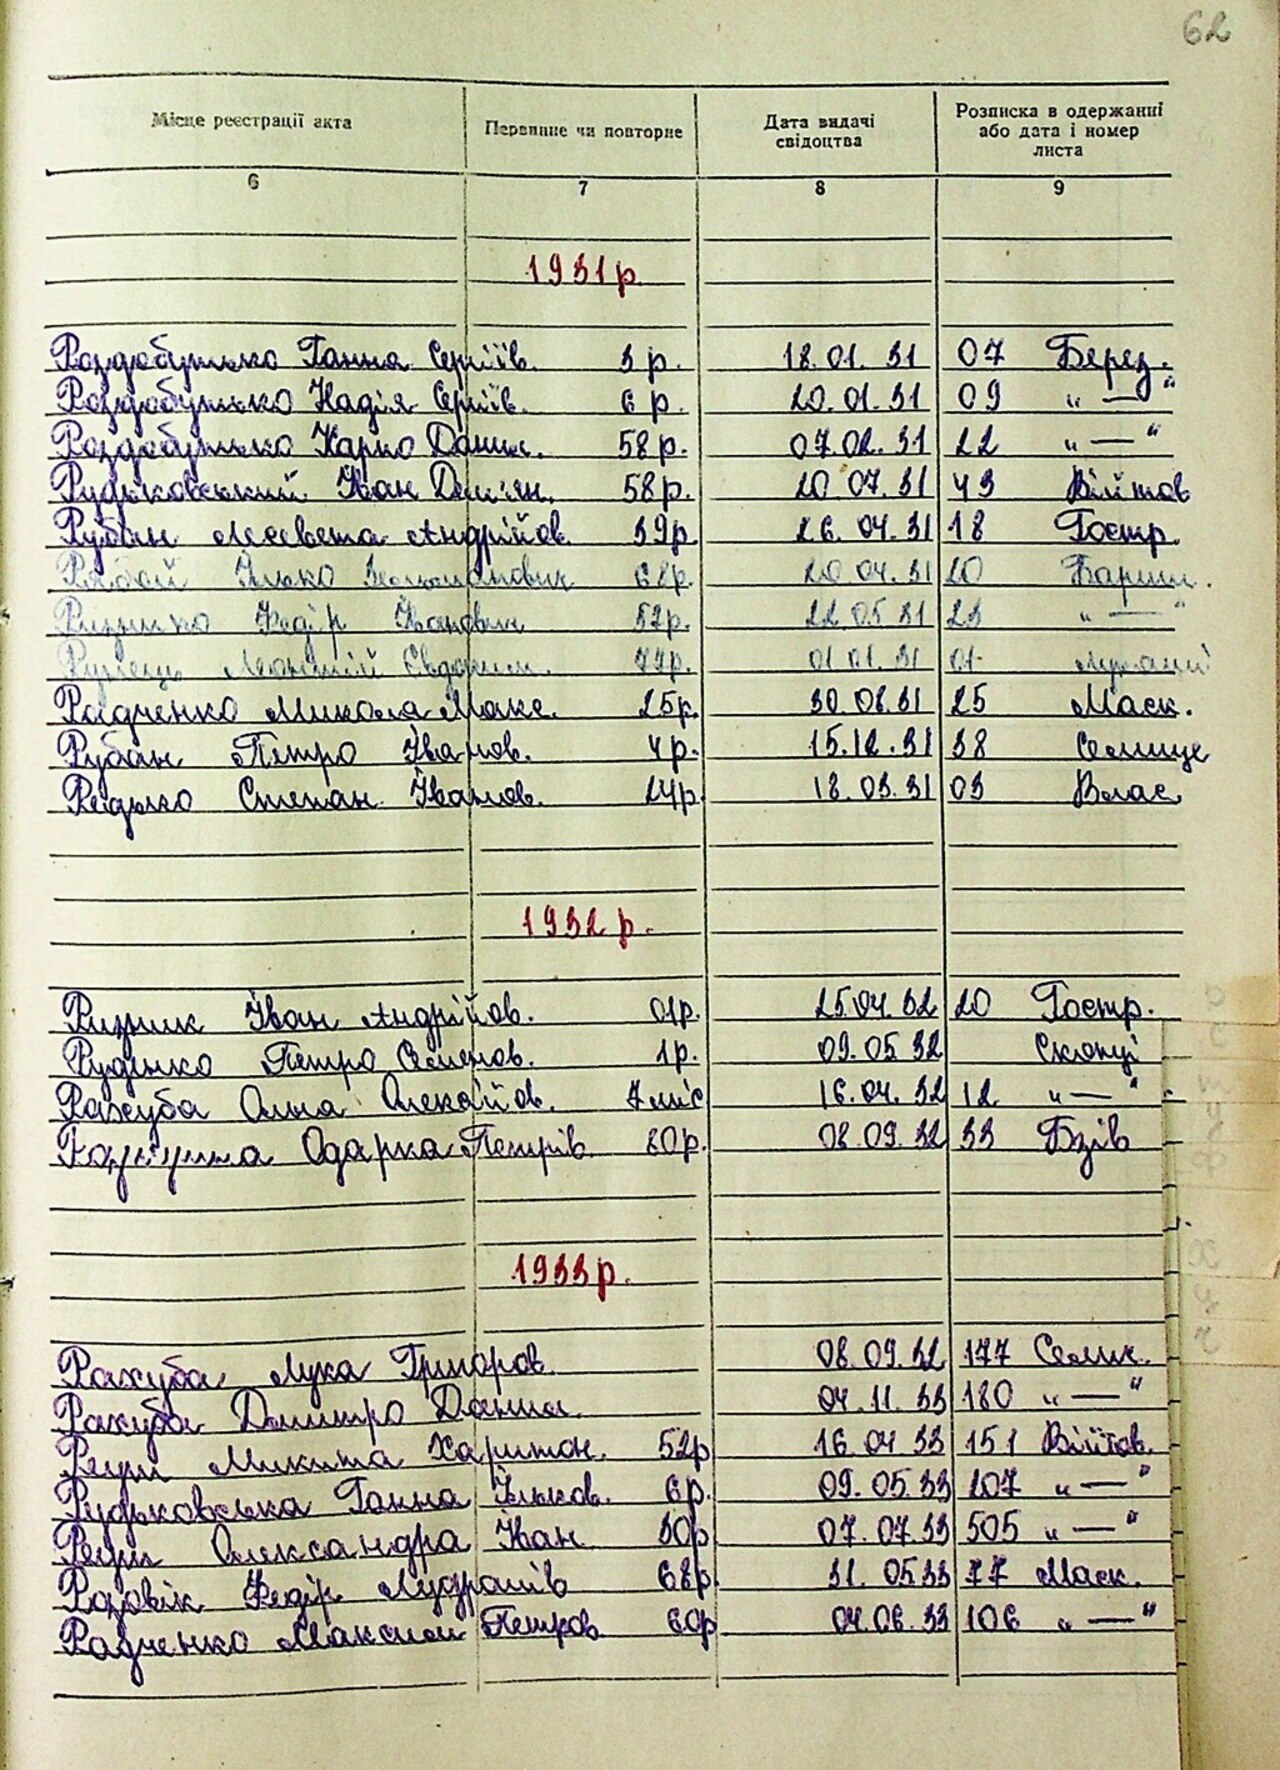 62
Місце реєстрації акта Первинне чи повторне Дата видачі свідоцтва Розписка в одержанні або дата і номер листа
6 7 8 9
1931 р.
Роздобутько Ганна Сергіїв. 3 р. 18.01.31 07 Берез.
Роздобутько Надія Сергіїв. 6 р. 20.01.31 09 „ — "
Роздобутько Карпо Данил. 58 р. 07.02.31 22 „ — "
Рудьковський Іван Дем'ян. 58 р. 20.07.31 43 Війтов
Рубан Лисвета Андрійов. 39 р. 26.04.31 18 Гостр.
Рябой Ілько 68 р. 20.04.31 20 Бариш.
Ризнико Федір Іванович 52 р. 22.05.31 23 „ — "
Євдоким. 01.01.31 01
Радченко Микола Макс. 25 р. 30.08.31 25 Маск.
Рубан Петро Іванов. 4 р. 15.12.31 38 Селище
Редько Степан Іванов. 24 р. 18.03.31 03 Влас
1932 р.
Ризник Іван Андрійов. 01 р. 25.04.32 20 Гостр.
Руденко Петро Семенов. 1 р. 09.05.32 Скопці
Рахуба Олена Олексійов. 7 міс 16.04.32 12 „ — "
Одарка Петрів. 80 р. 08.09.32 33 Бзів
1933 р.
Рахуба Лука Григоров. 08.09.32 177 Селищ.
Рахуба Дмитро Данил. 04.11.33 180 „ — "
Репи Микита Харитон. 52 р 16.04.33 151 Війтов.
Рудьковська Ганна Ільков. 6 р. 09.05.33 107 „ — "
Репи Олександра Іван 30 р 07.07.33 505 „ — "
Розовік Федір 68 р. 31.05.33 77 Маск.
Радченко Максим Петров. 60 р 04.06.33 106 „ — "